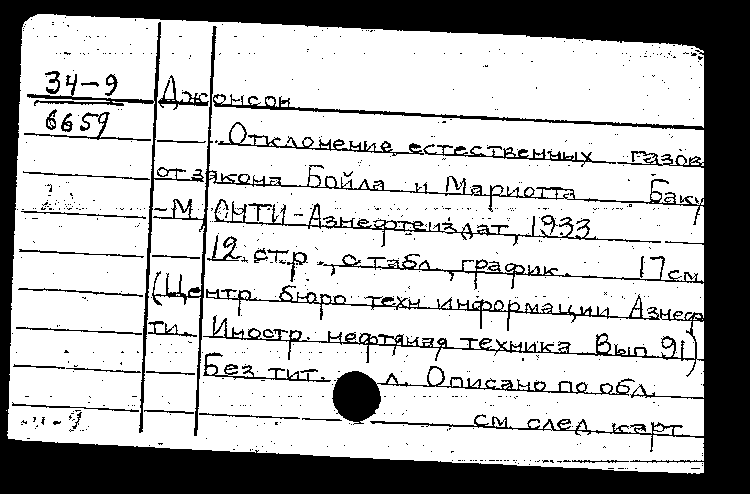 34-9 Джонсон
6659 Отклонение естественных газов
от закона Бойла и Мариотта Баку
-М, ОНТИ-Азнефтеиздат, 1933
12 стр., с табл, график. 17 см.
(Центр. бюро техн информации Азнеф
ти. Иностр. нефтяная техника Вып 91)
Без тит. л. Описано по обл.
см след карт